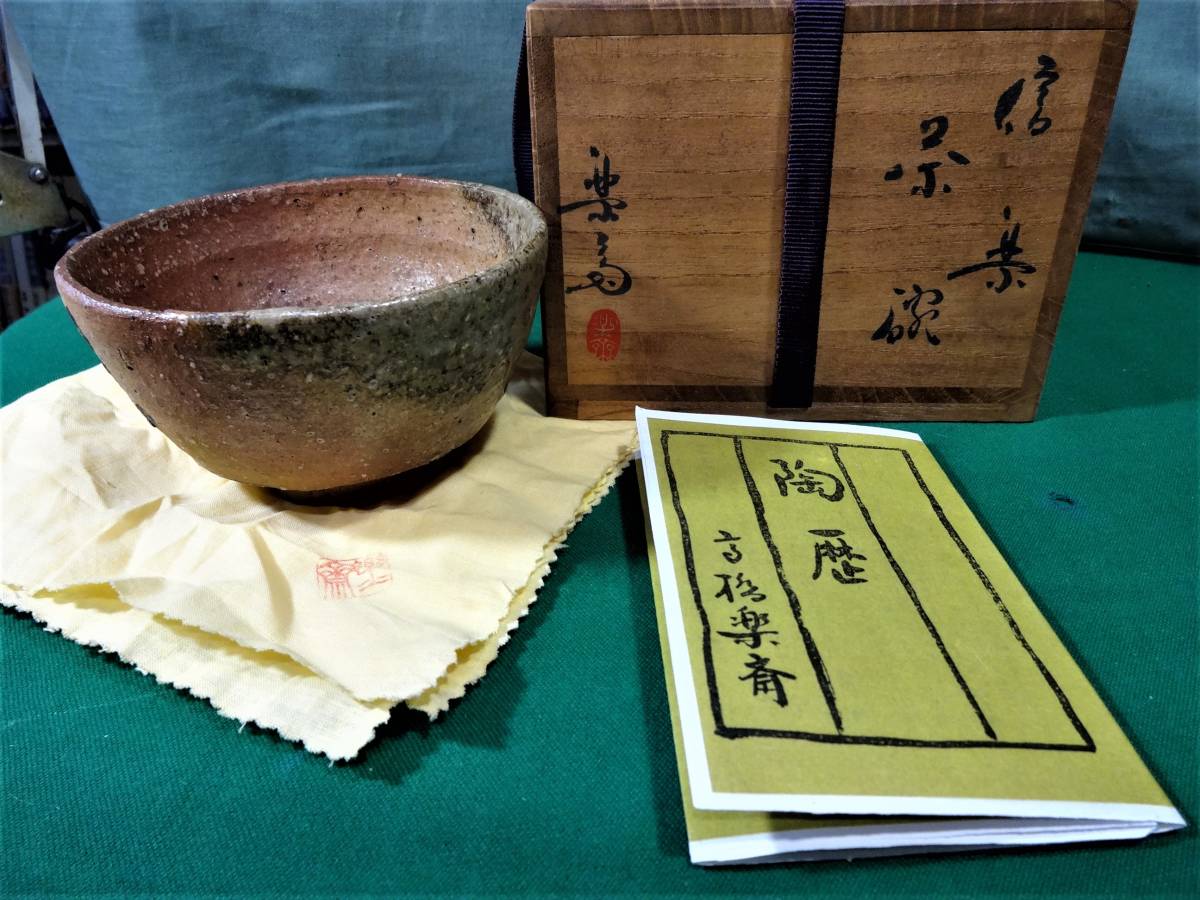 信楽
茶碗
楽斎
陶歴
高橋楽斎